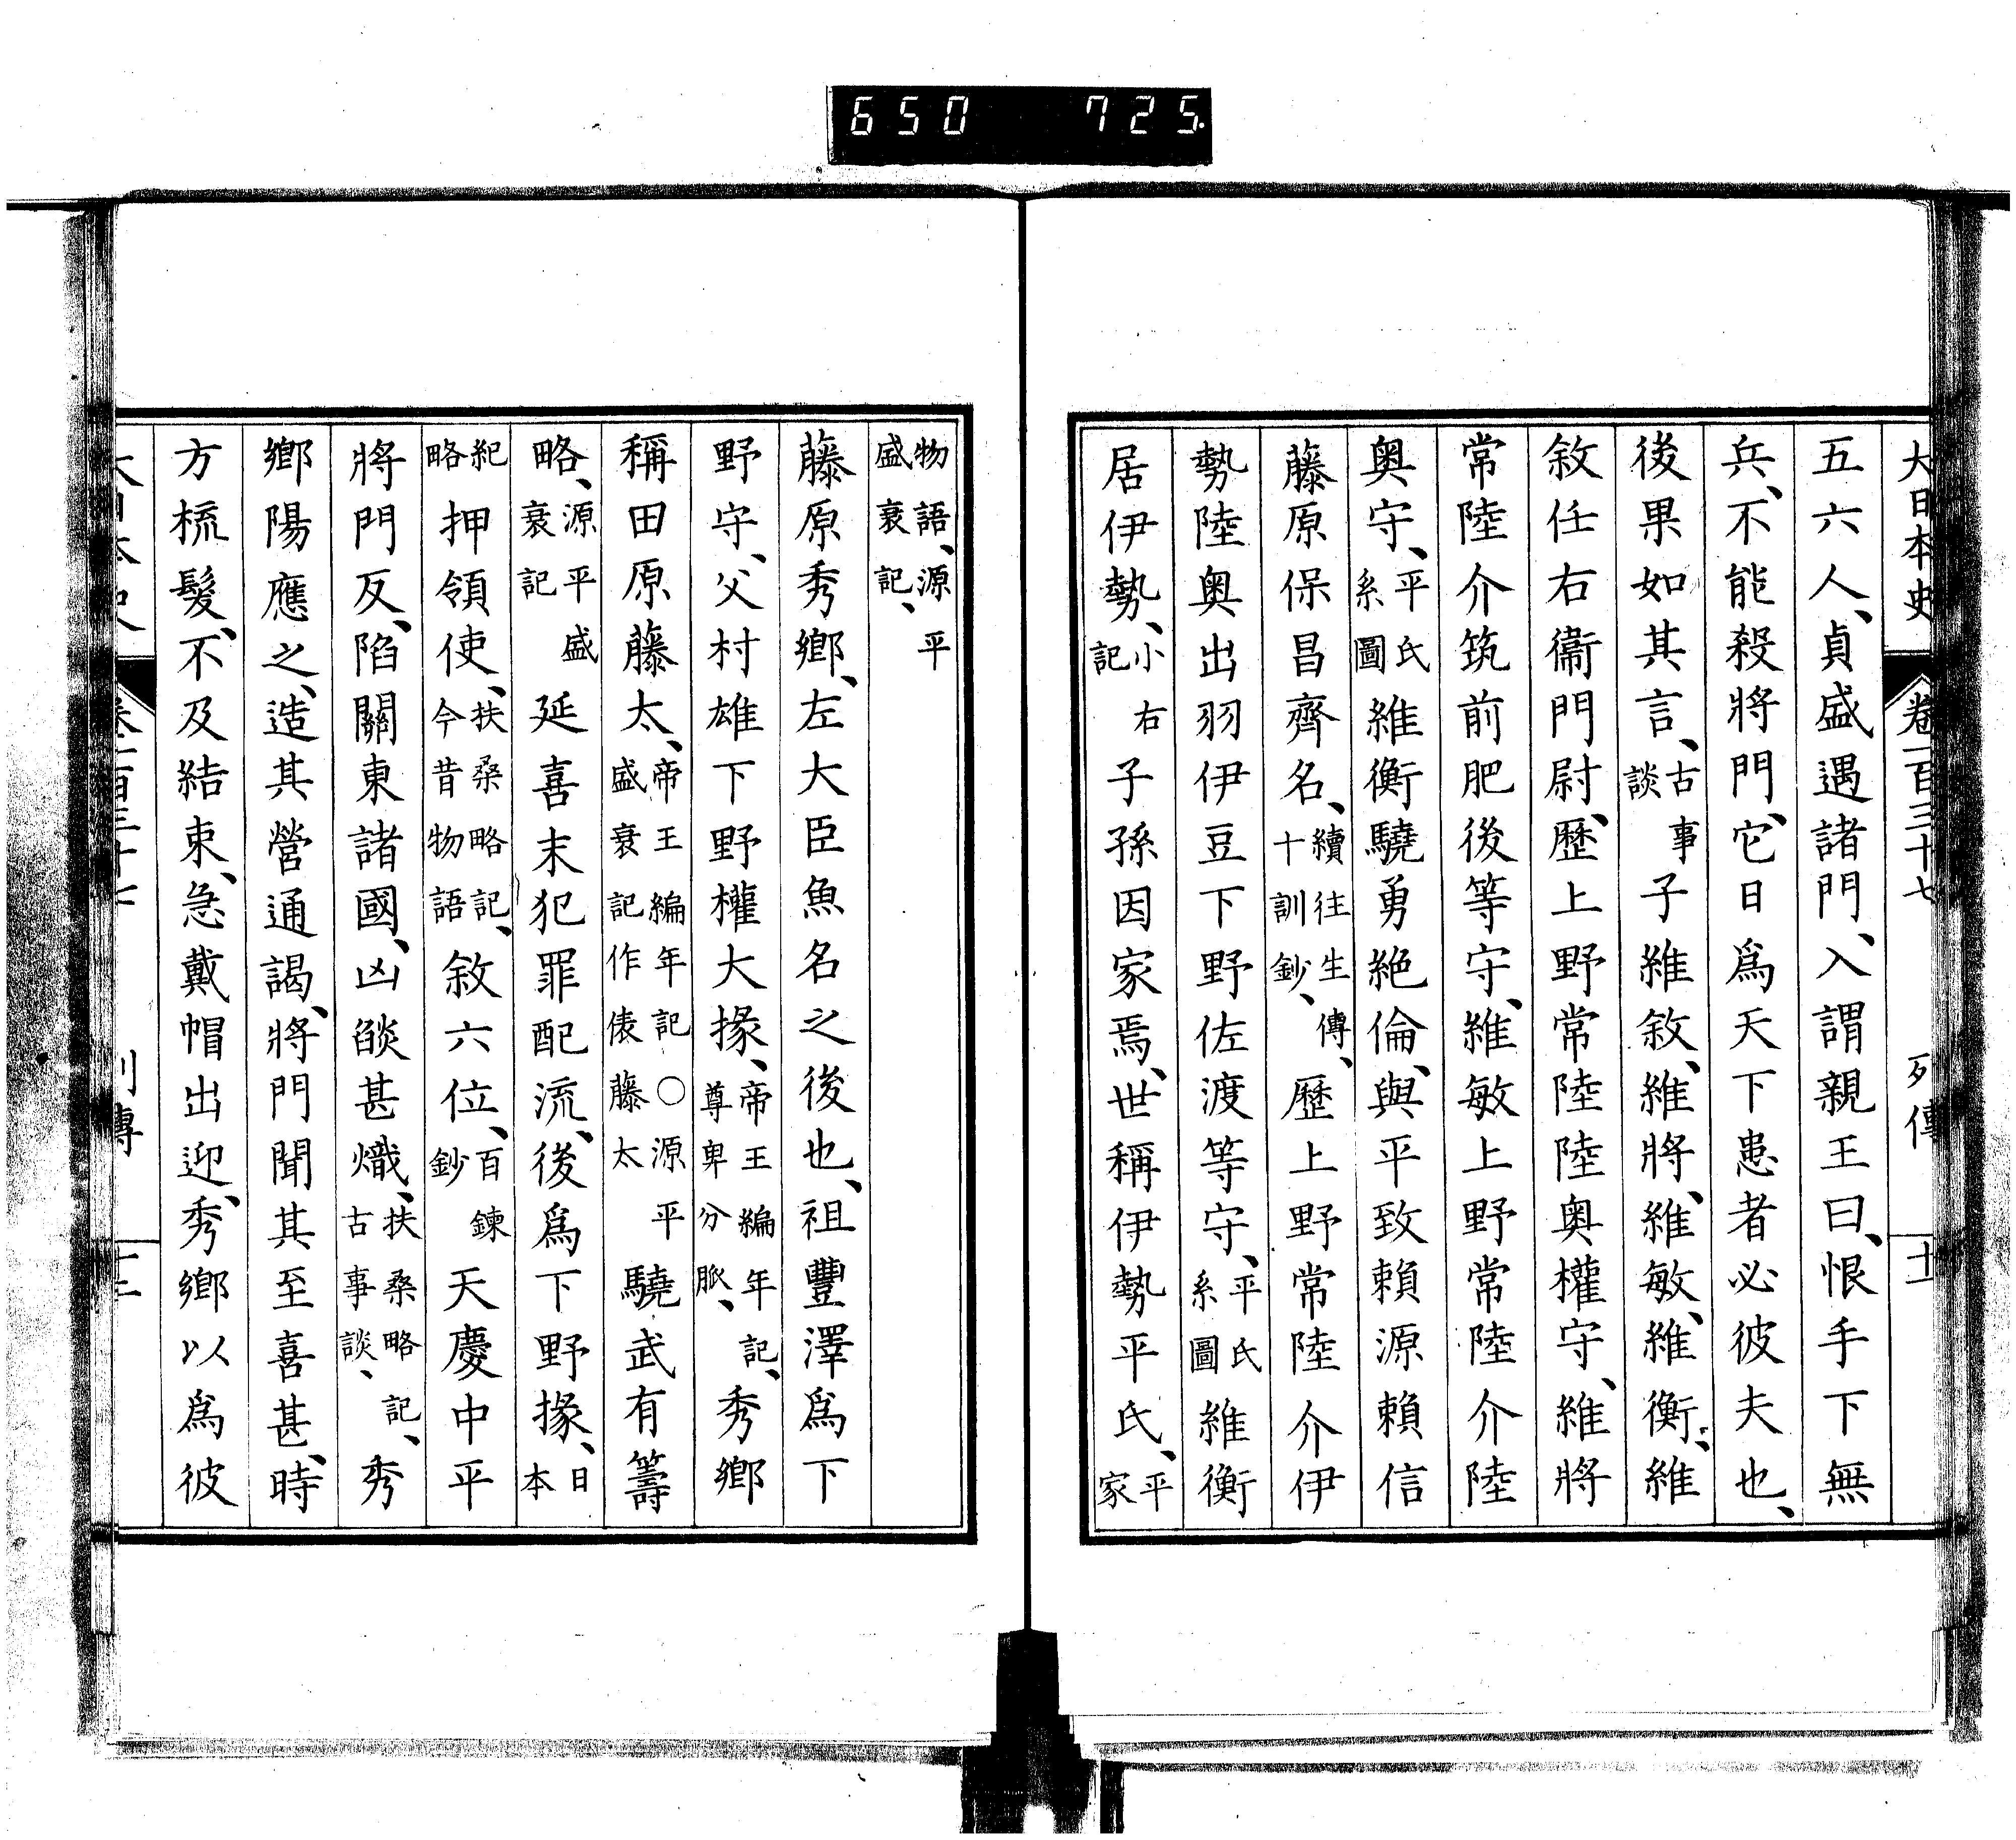 650 725
大日本史 卷一百三十七 列傳 十一
五六人、貞盛遇諸門、入謂親王曰、恨手下無
兵、不能殺將門、它日爲天下患者必彼夫也、
後果如其言、古事談子維敘、維將、維敏、維衡、維
敘任右衞門尉、歷上野常陸陸奧權守、維將
常陸介筑前肥後等守、維敏上野常陸介陸
奧守、平氏系圖維衡驍勇絶倫、與平致賴源賴信
藤原保昌齊名、續往生傳、十訓鈔、歷上野常陸介伊
勢陸奧出羽伊豆下野佐渡等守、平氏系圖維衡
居伊勢、小右記子孫因家焉、世稱伊勢平氏、平家
物語、源平盛衰記、
藤原秀鄉、左大臣魚名之後也、祖豐澤爲下
野守、父村雄下野權大掾、帝王編年記、尊卑分脈、秀鄉
稱田原藤太、帝王編年記○源平盛衰記作俵藤太驍武有籌
略、源平盛衰記延喜末犯罪配流、後爲下野掾、日本
紀略押領使、扶桑略記、今昔物語敘六位、百鍊鈔天慶中平
將門反、陷關東諸國、凶燄甚熾、扶桑略記、古事談、秀
鄉陽應之、造其營通謁、將門聞其至喜甚、時
方梳髮、不及結束、急戴帽出迎、秀鄉以爲彼